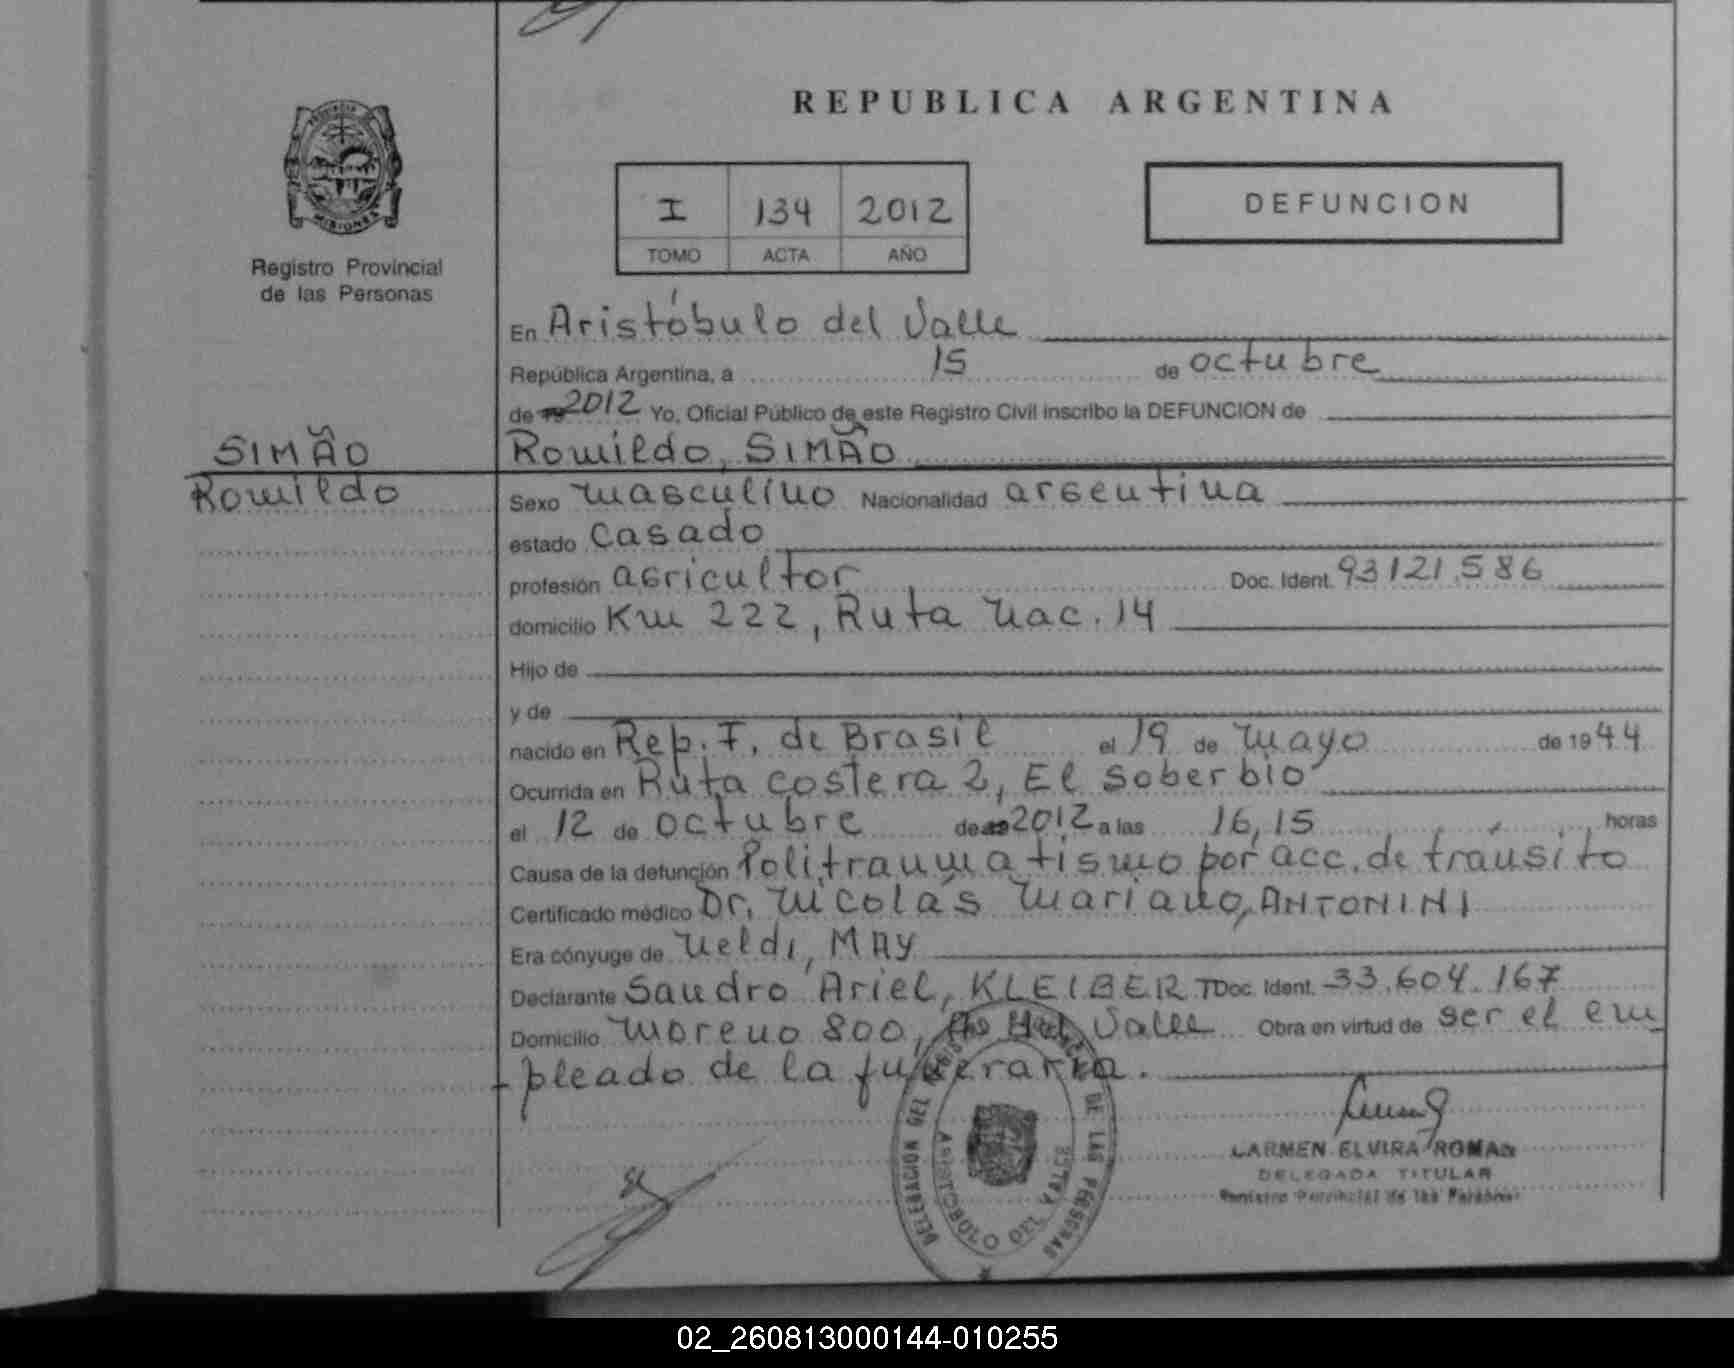 REPUBLICA ARGENTINA
I 134 2012
TOMO ACTA AÑO
DEFUNCION
MISIONES
Registro Provincial
de las Personas
En Aristóbulo del Valle
República Argentina, a 15 de octubre
de 19 2012 Yo, Oficial Público de este Registro Civil inscribo la DEFUNCION de
SIMÃO
Romildo
Romildo, SIMÃO
Sexo masculino Nacionalidad argentina
estado casado
profesión agricultor Doc. Ident. 93121.586
domicilio Km 222, Ruta Nac. 14
Hijo de
y de
nacido en Rep. F. de Brasil el 19 de Mayo de 1944
Ocurrida en Ruta costera 2, El Soberbio
el 12 de octubre de 19 2012 a las 16,15 horas
Causa de la defunción Politraumatismo por acc. de transito
Certificado médico Dr. Nicolás Mariano, ANTONINI
Era cónyuge de Neldi, MAY
Declarante Sandro Ariel, KLEIBERT Doc. Ident. 33.604.167
Domicilio Moreno 800, Valle Obra en virtud de ser el em
pleado de la funeraria.
DELEGACION DEL DE LAS PERSONAS
ARISTOBULO DEL VALLE
CARMEN ELVIRA ROMAN
DELEGADA TITULAR
Registro Provincial de las Personas
02_260813000144-010255